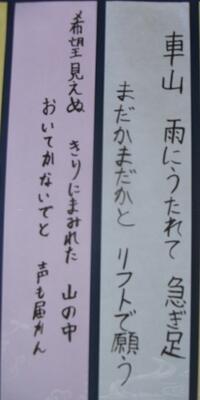 車山 雨にうたれて 急ぎ足
まだかまだかと リフトで願う
希望見えぬ きりにまみれた 山の中
おいてかないでと 声も届かん